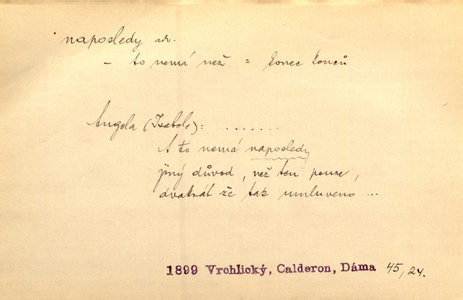 naposledy adv.
– to nemá než = konec konců
Angela (Isabele): .......
A to nemá naposledy
jiný důvod, než ten pouze,
dvakrát že tak umluveno ...
1899 Vrchlický, Calderon, Dáma 45/24.